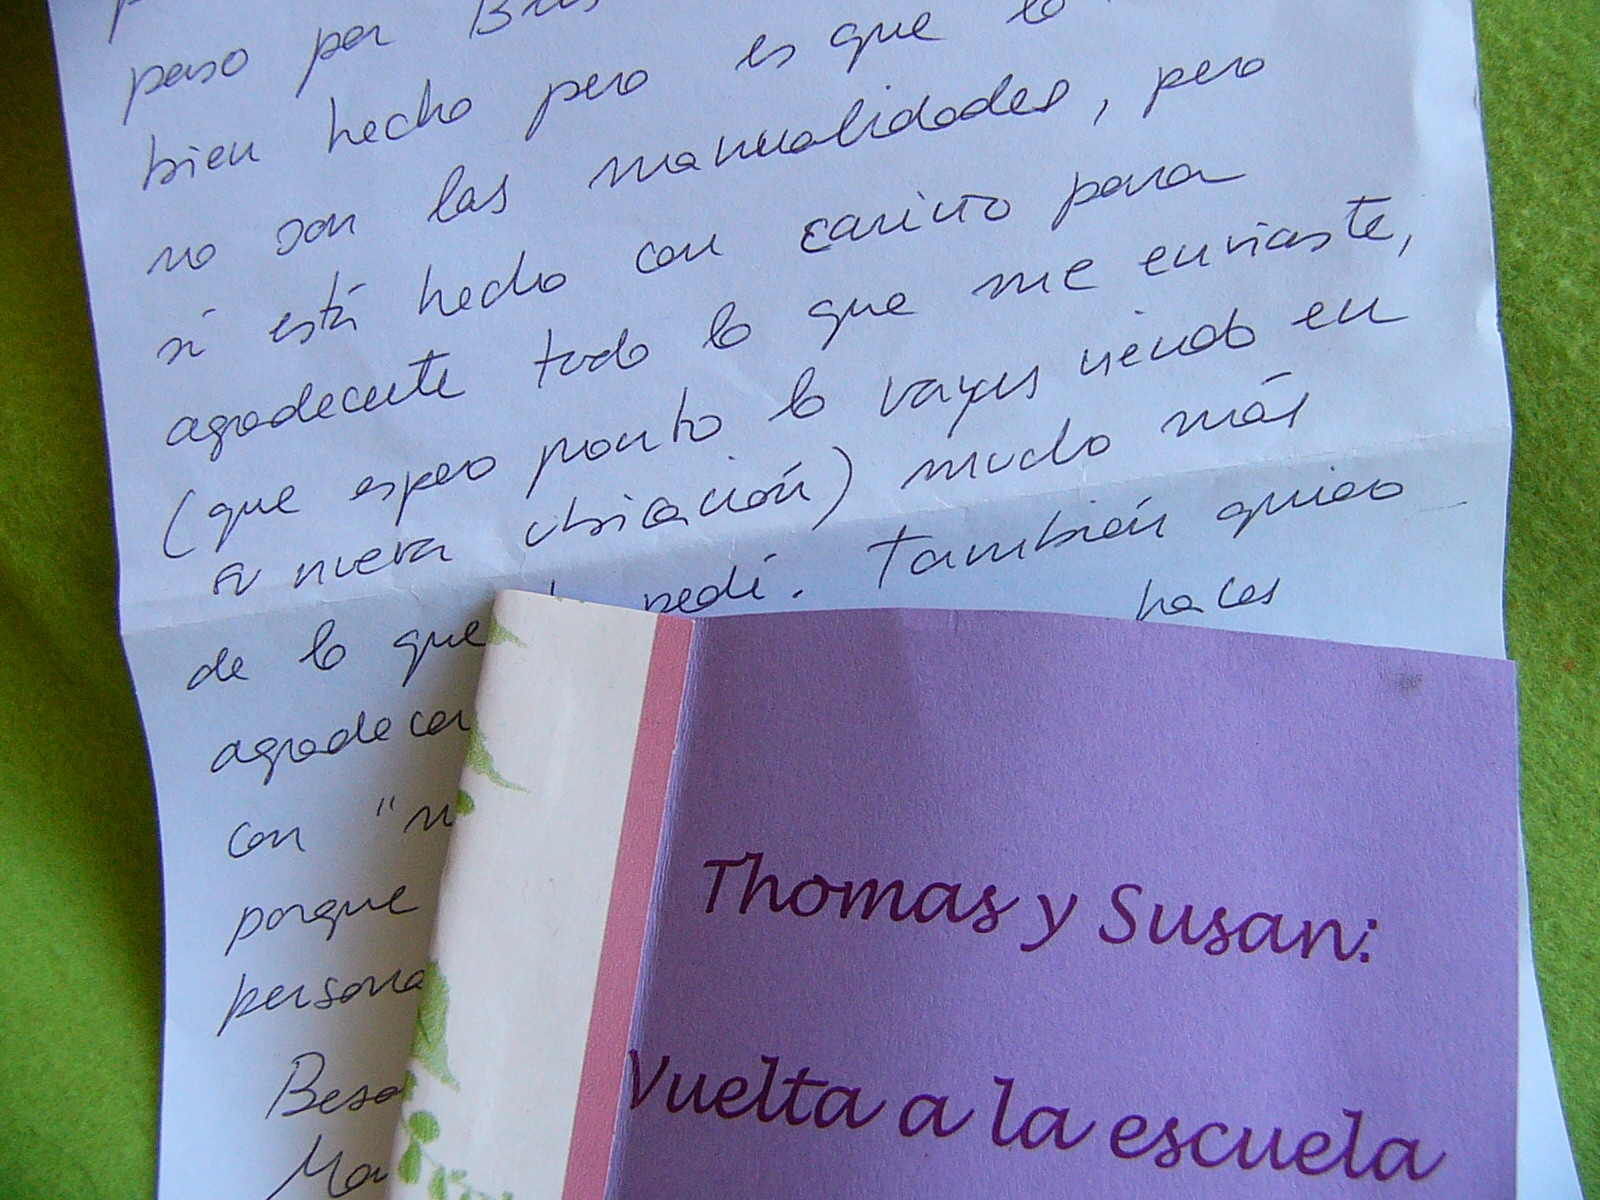 paso por
bien hecho pero es que lo
no son las manualidades, pero
sí está hecho con cariño para
agradecerte todo lo que me enviaste,
(que espero pronto lo vayas viendo en
su nueva ubicación) mucho más
de lo que pedí. También quiero
agradecer haces
con "
porque
persona
Beso
Ma
Thomas y Susan:
Vuelta a la escuela